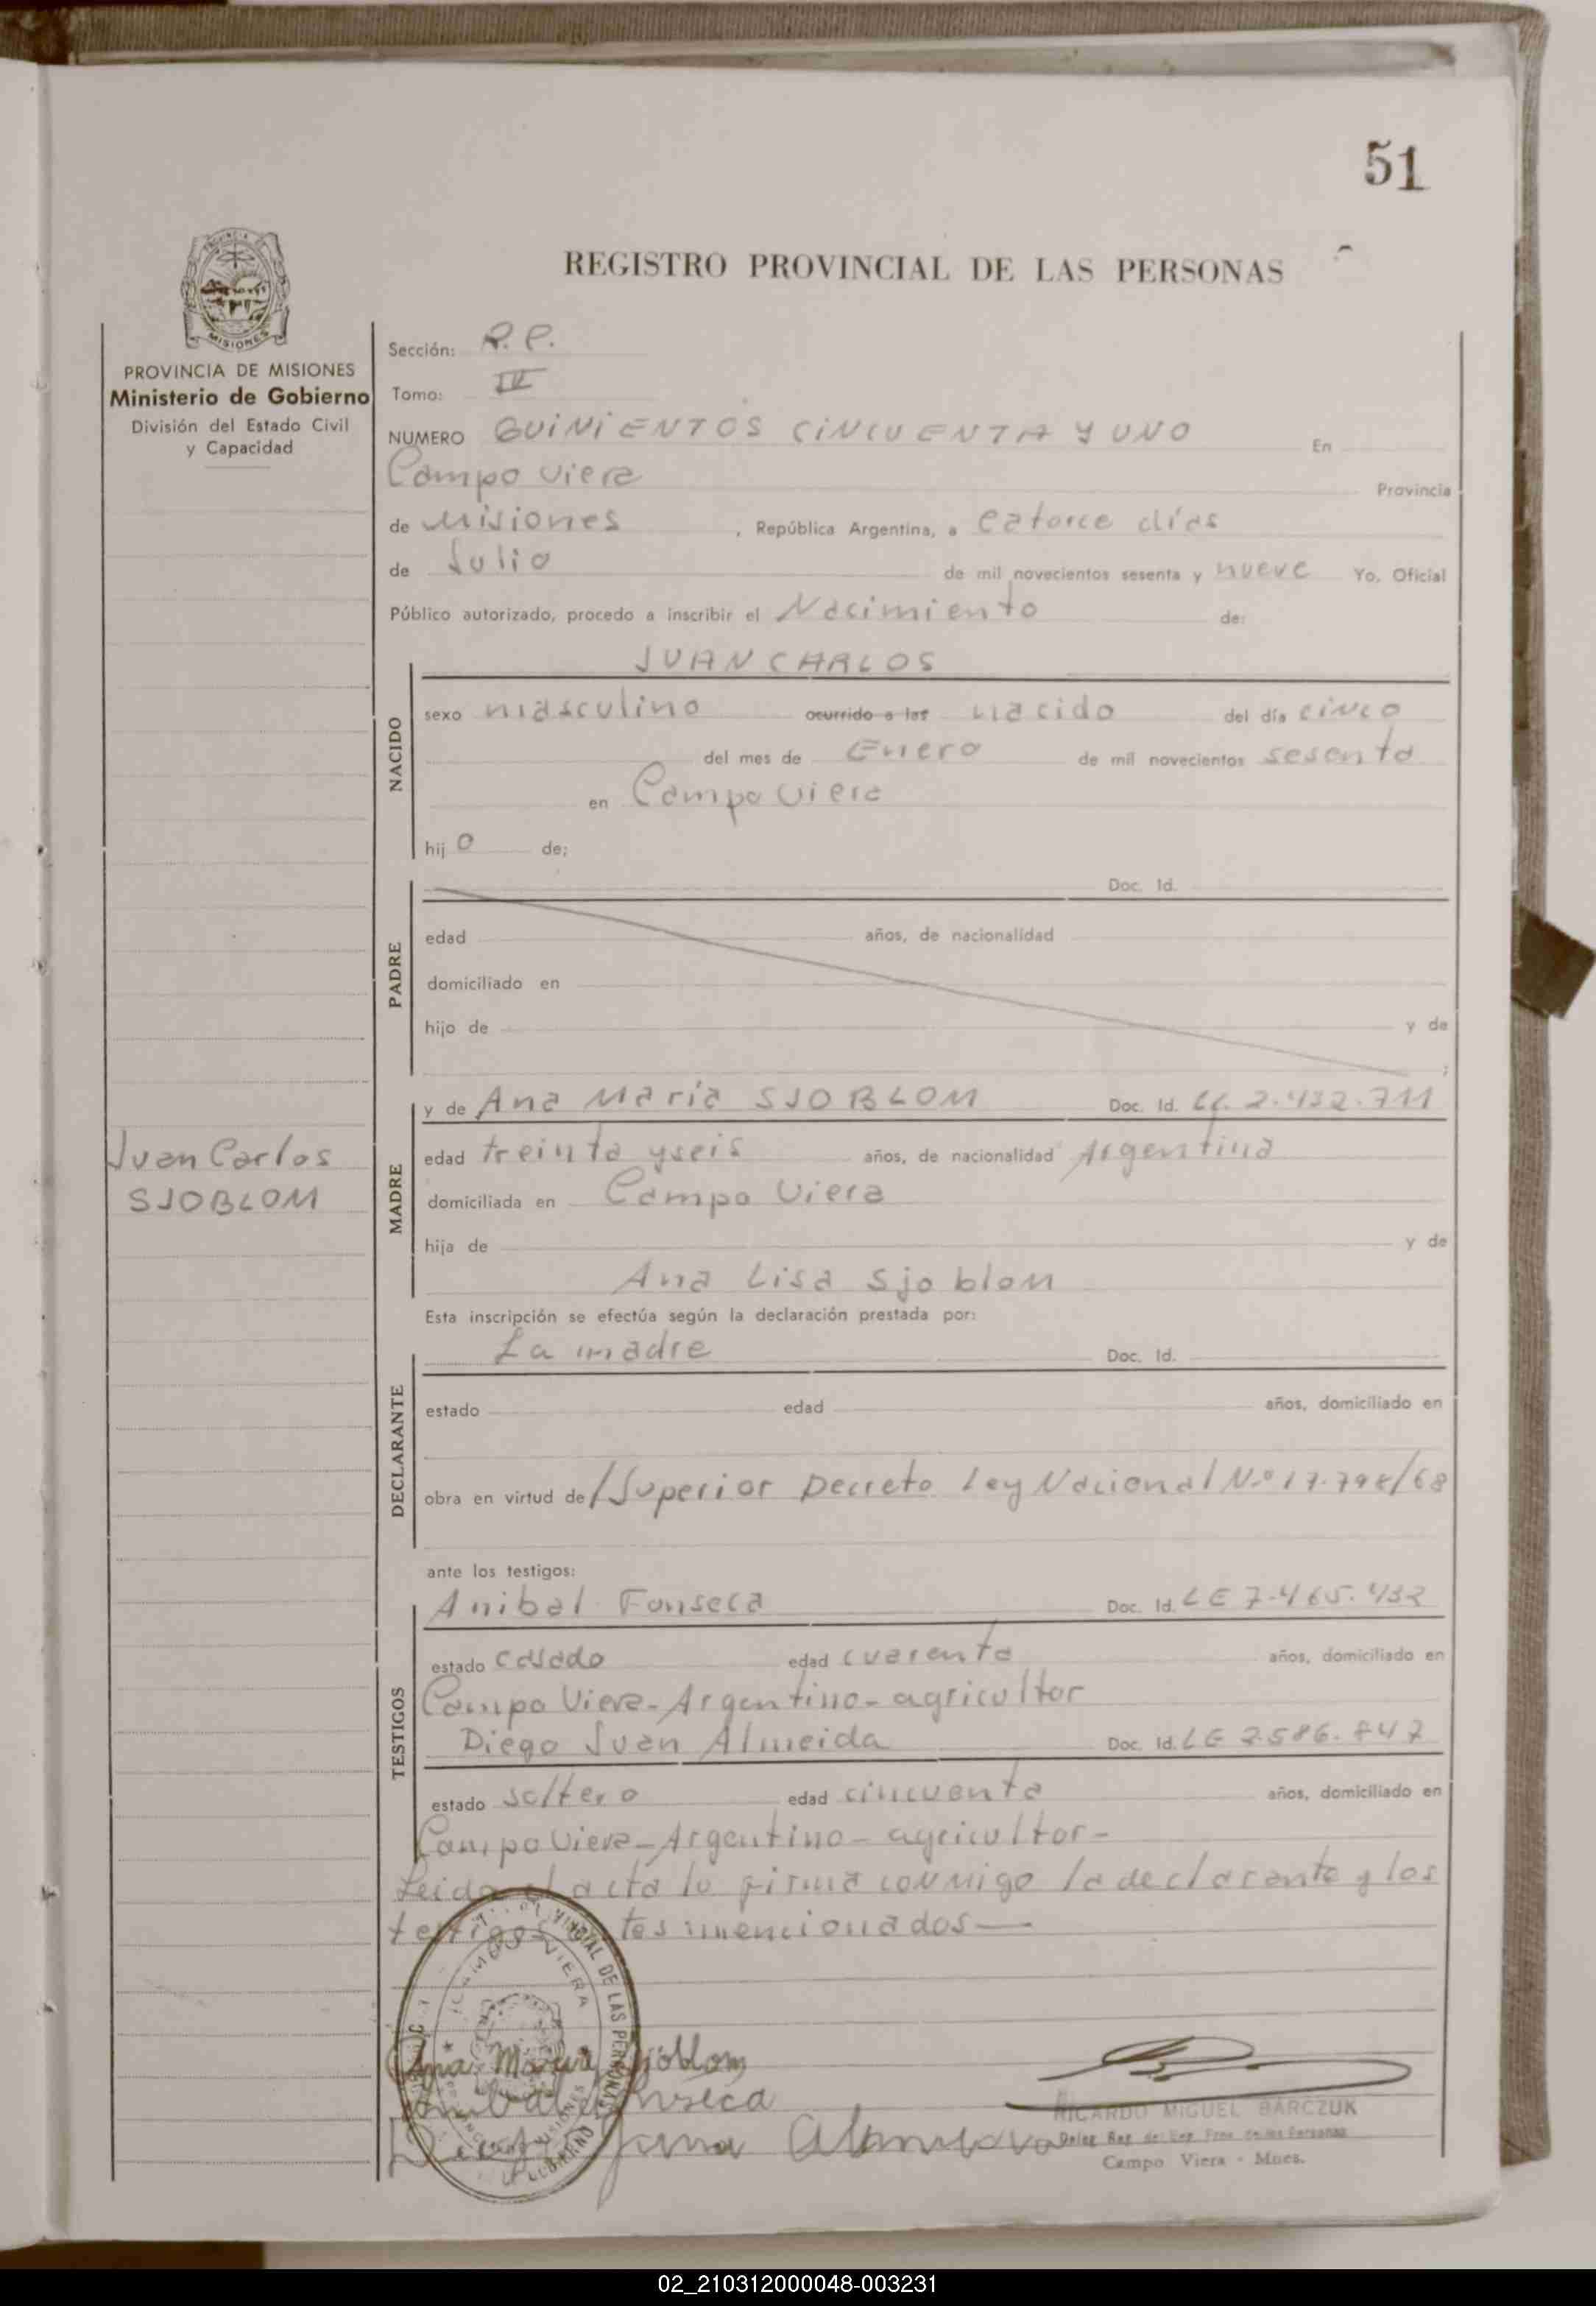 51
REGISTRO PROVINCIAL DE LAS PERSONAS
MISIONES
PROVINCIA DE MISIONES
Ministerio de Gobierno
División del Estado Civil
y Capacidad
Sección: R.P.
Tomo: III
NUMERO QUINIENTOS CINCUENTA Y UNO En
Campo Viera Provincia
de Misiones, República Argentina, a catorce días
de Julio de mil novecientos sesenta y nueve Yo, Oficial
Público autorizado, procedo a inscribir el Nacimiento de:
JUAN CARLOS
NACIDO
sexo masculino ocurrido a las nacido del día cinco
del mes de Enero de mil novecientos sesenta
en Campo Viera
hijo de;
PADRE
Doc. Id.
edad años, de nacionalidad
domiciliado en
hijo de y de
;
MADRE
y de Ana Maria SJOBLOM Doc. Id. LC. 2.432.711
Juan Carlos
SJOBLOM
edad treinta y seis años, de nacionalidad Argentina
domiciliada en Campo Viera
hija de y de
Ana Lisa Sjoblom
Esta inscripción se efectúa según la declaración prestada por:
DECLARANTE
La madre Doc. Id.
estado edad años, domiciliado en
obra en virtud de /Superior Decreto Ley Nacional N.º 17.798/68
ante los testigos:
TESTIGOS
Anibal Fonseca Doc. Id. LE 7.465.432
estado casado edad cuarenta años, domiciliado en
Campo Viera-Argentino-agricultor
Diego Juan Almeida Doc. Id. LE 2.586.847
estado soltero edad cincuenta años, domiciliado en
Campo Viera-Argentino-agricultor-
Leida el acta la firma conmigo la declarante y los
testigos mencionados—
CAMPO VIERA
Ana Maria Sjöblom
Anibal Fonseca
Diego Juan
RICARDO MIGUEL BARCZUK
Campo Viera - Mnes.
02_210312000048-003231